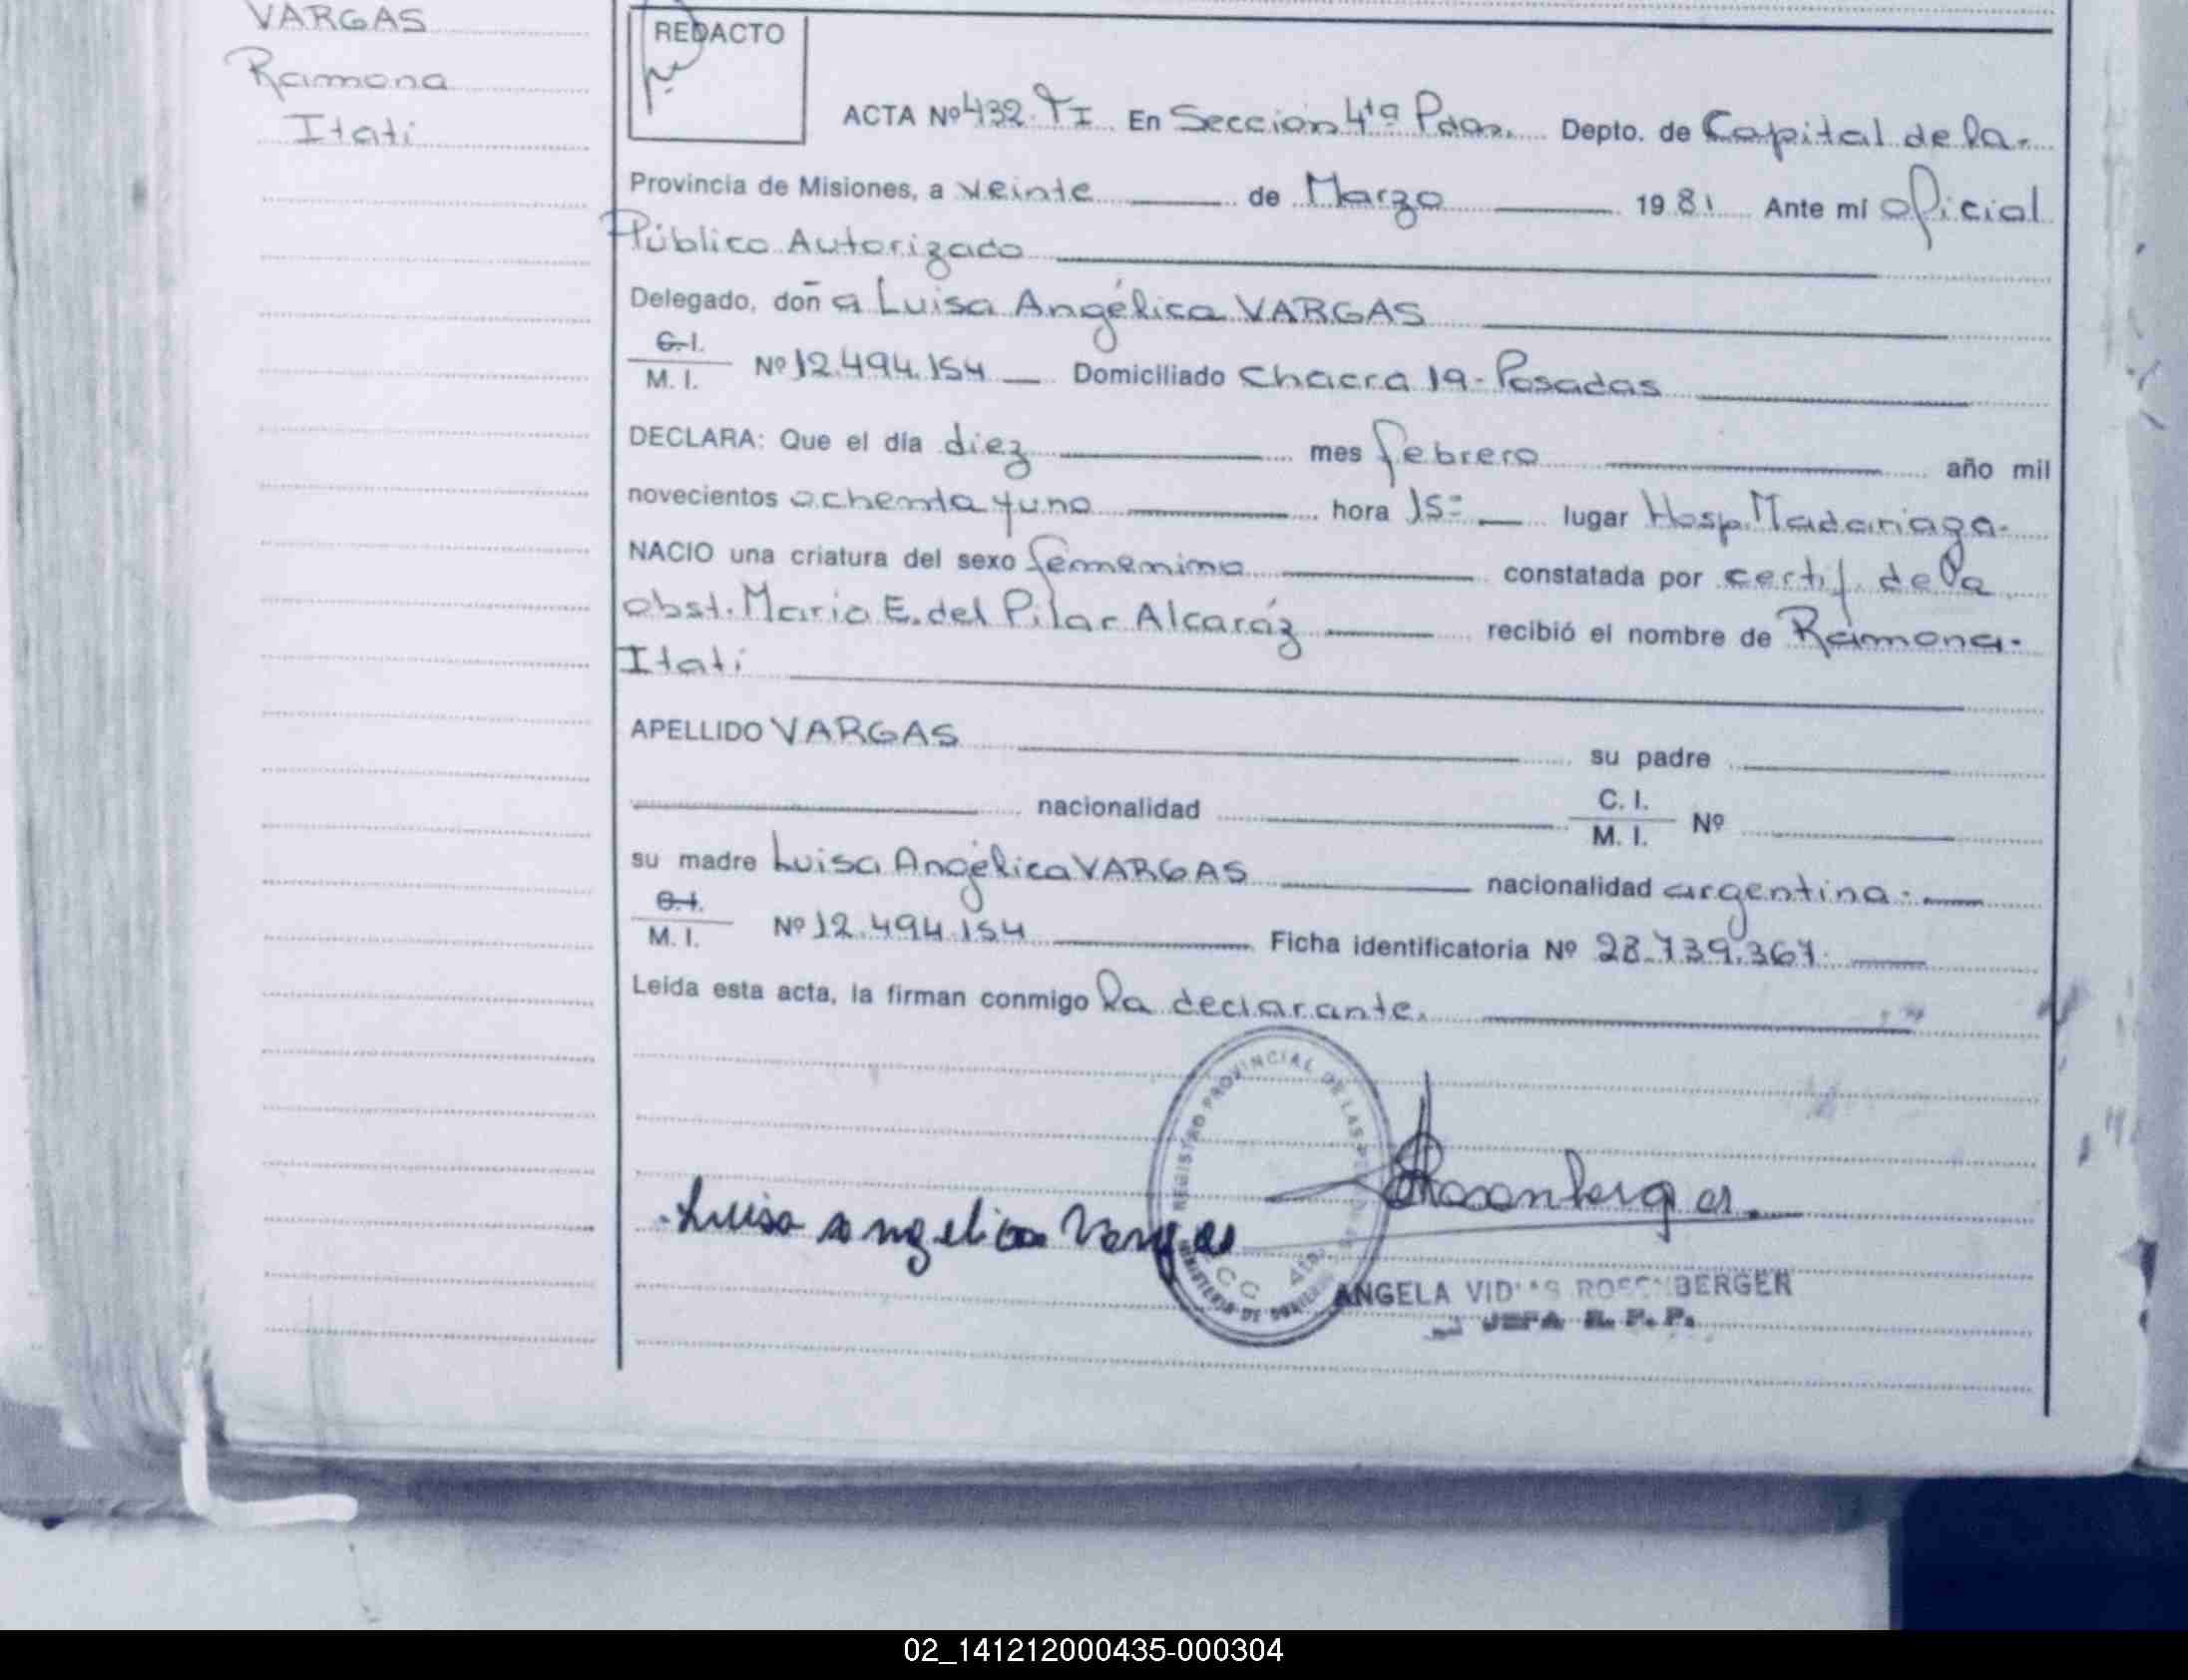 VARGAS
Ramona
Itati
REDACTO
ACTA Nº 432. TI. En Sección 4ta Pdas. Depto. de Capital de la-
Provincia de Misiones, a veinte de Marzo 1981 Ante mí oficial
Público Autorizado
Delegado, doña Luisa Angélica VARGAS
C. I.
M. I. Nº 12.494.154 Domiciliado Chacra 19-Posadas
DECLARA: Que el día diez mes febrero año mil
novecientos ochenta y uno hora 15= lugar Hosp. Madariaga-
NACIO una criatura del sexo femenino constatada por certif. de la
obst. Maria E. del Pilar Alcaráz recibió el nombre de Ramona-
Itati
APELLIDO VARGAS su padre
nacionalidad C. I.
M. I. Nº
su madre Luisa Angélica VARGAS nacionalidad argentina.
C. I.
M. I. Nº 12.494.154 Ficha identificatoria Nº 28.739.367.
Leída esta acta, la firman conmigo la declarante.
REGISTRO PROVINCIAL DE LAS
MINISTERIO DE GOBIERNO
Luisa angelica Vargas
Rosenberger
ANGELA VIDAS ROSENBERGER
JEFA R. P. P.
02_141212000435-000304